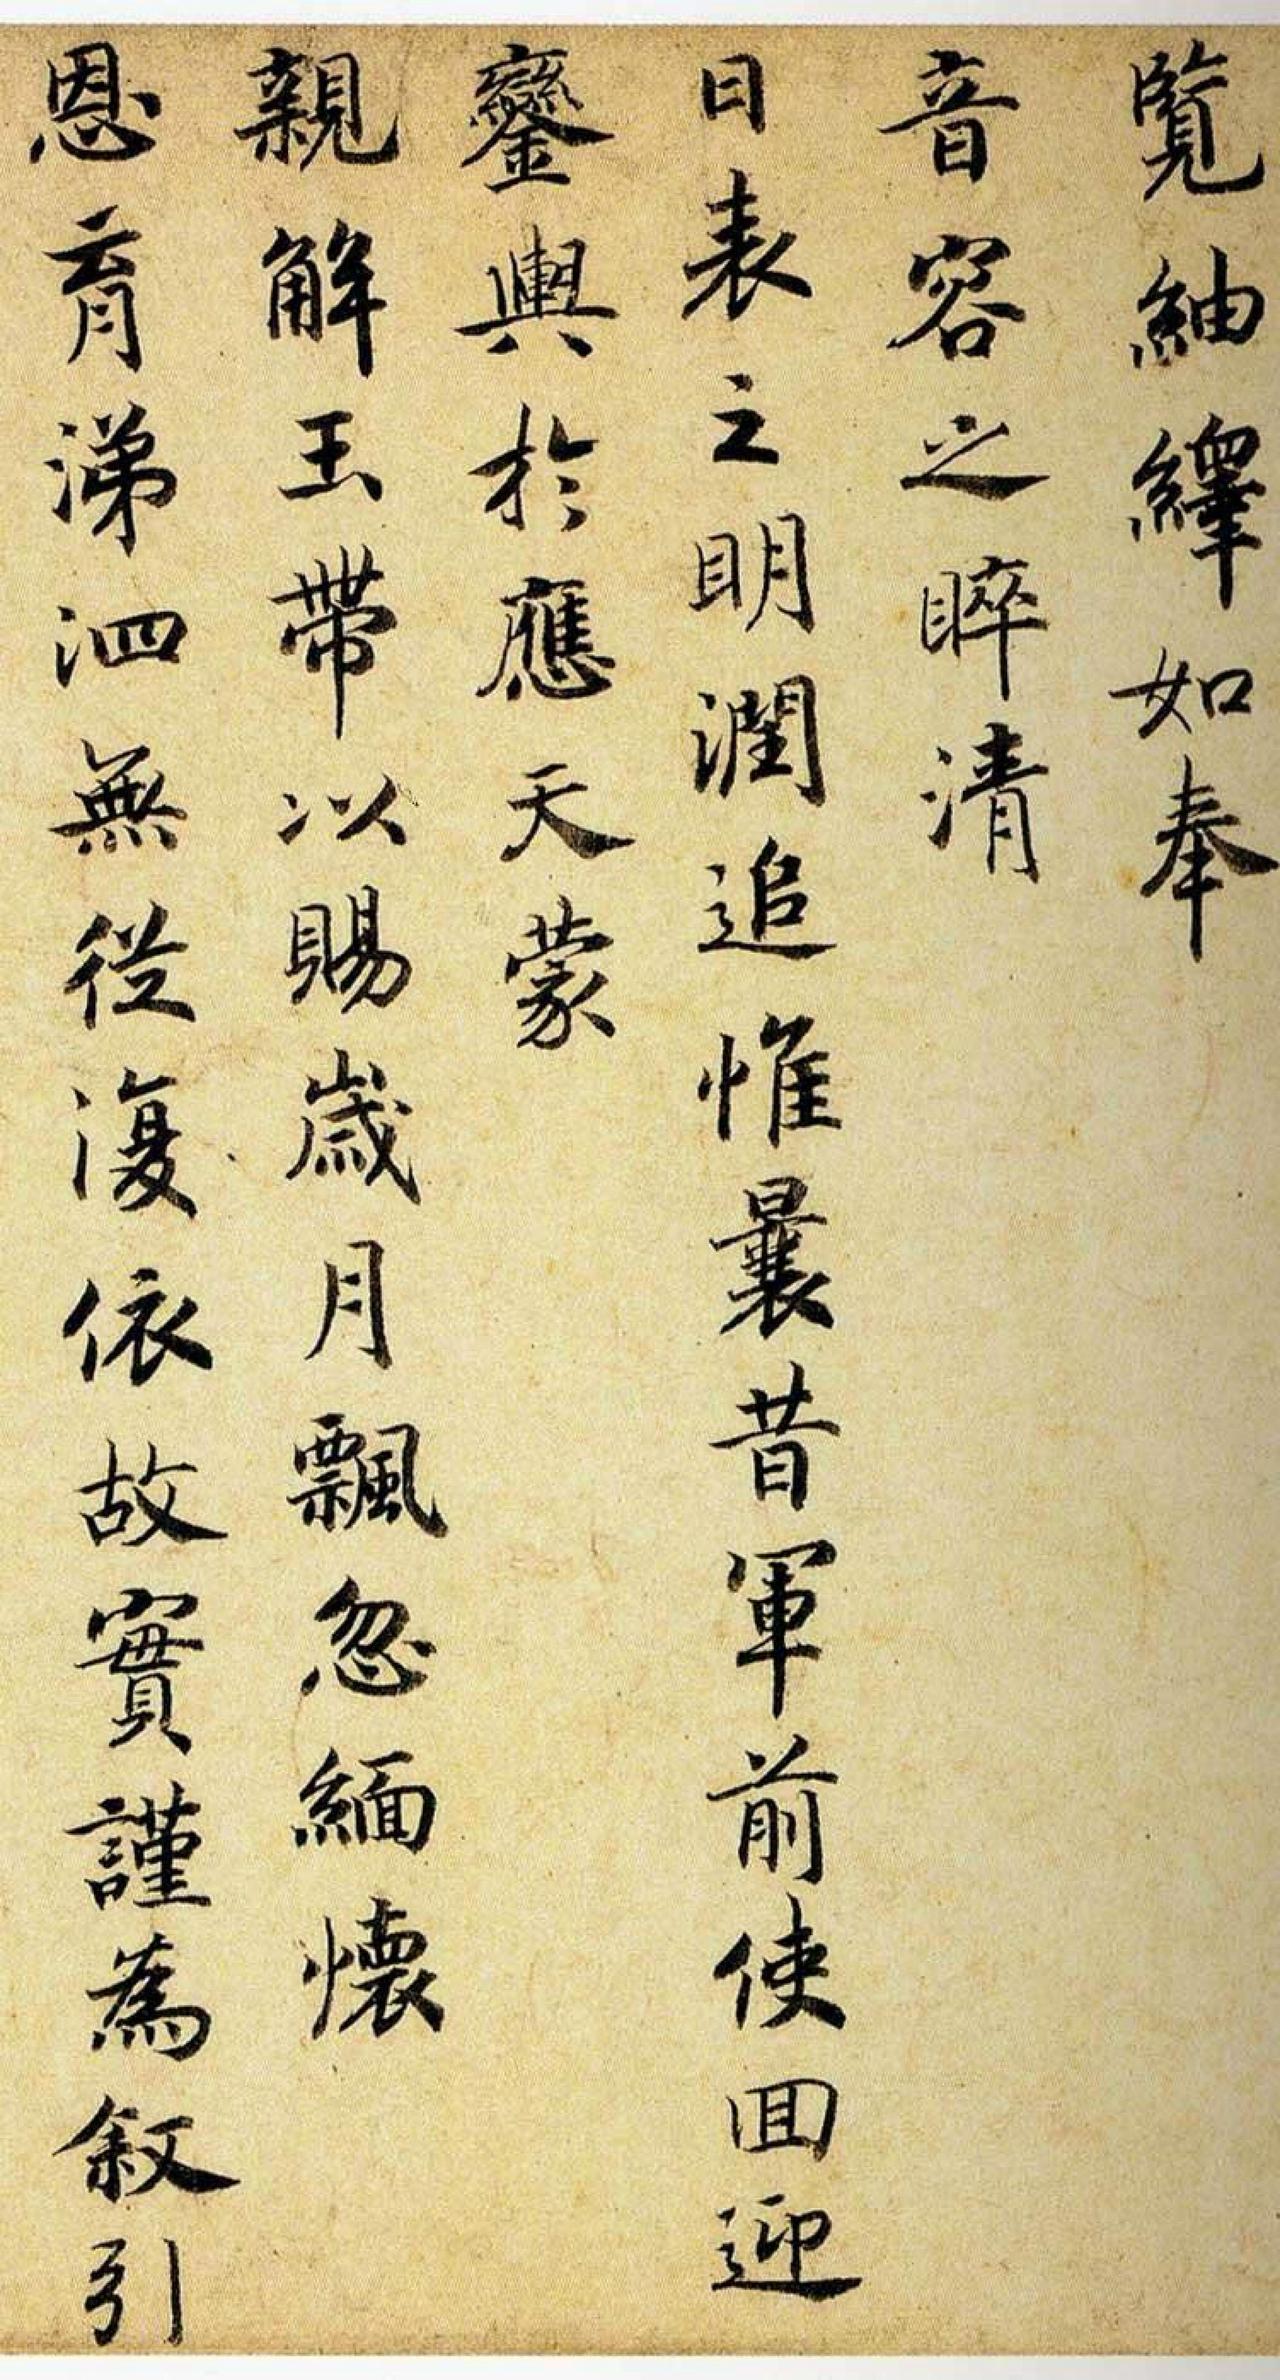 覧紬繹如奉
音容之睟清
日表之明潤追惟曩昔軍前使囬迎
鑾輿於應天蒙
親解玉帶以賜歲月飄忽緬懷
恩育涕泗無從復依故實謹為叙引